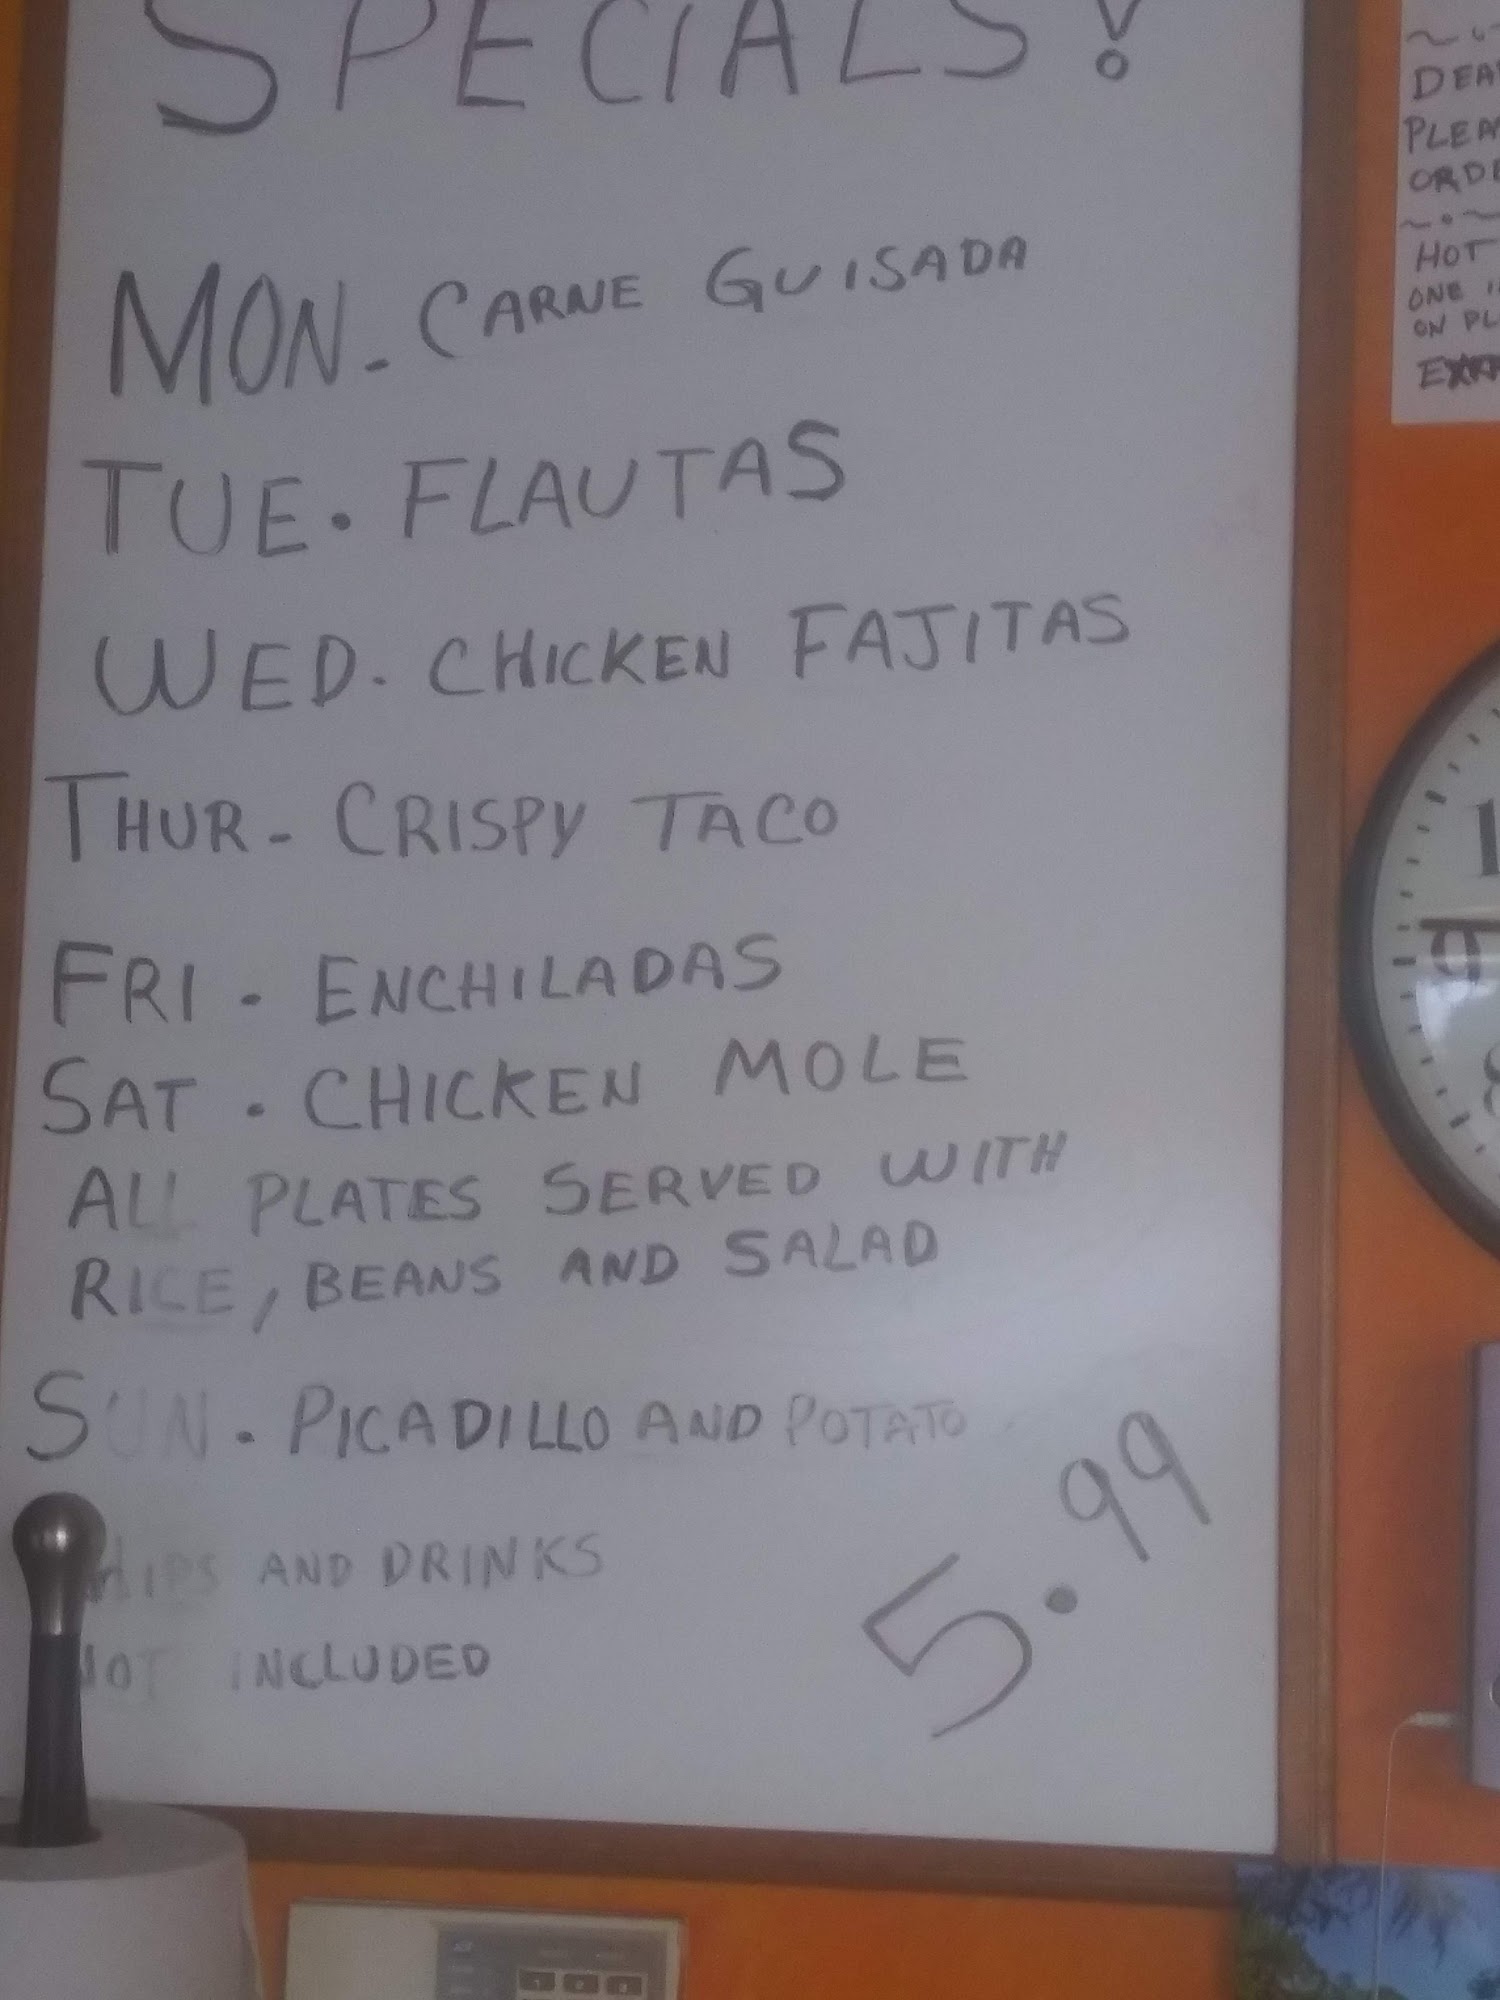 SPECIALS!
MON - CARNE GUISADA
TUE. FLAUTAS
WED. CHICKEN FAJITAS
THUR - CRISPY TACO
FRI - ENCHILADAS
SAT. CHICKEN MOLE
ALL PLATES SERVED WITH
RICE, BEANS AND SALAD
SUN. PICADILLO AND POTATO
CHIPS AND DRINKS
NOT INCLUDED
5.99
HOT
ONE
ON
9